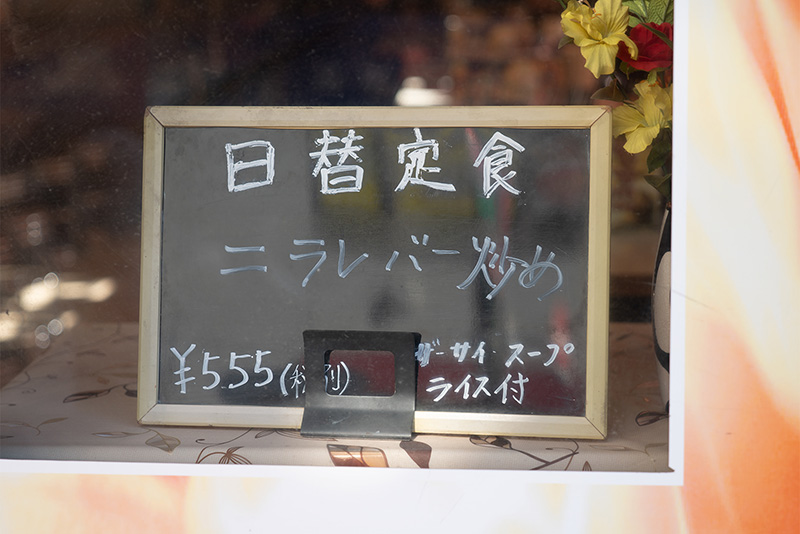 日替定食
ニラレバー炒め
¥555(税別)
ザーサイ・スープ
ライス付